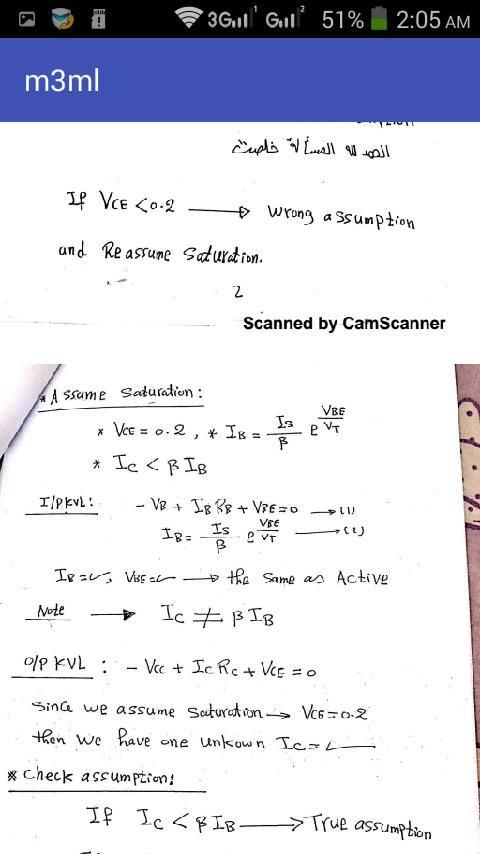 3G 1 G 2 51% 2:05 AM
m3ml
If VCE <0.2 → wrong assumption
and Reassume Saturation.
2
Scanned by CamScanner
* Assame Saturation:
* VCE = 0.2, * IB = Is/β e^(VBE/VT)
* IC < β IB
I/P KVL: - VB + IB RB + VBE = 0 → (1)
IB = Is/β e^(VBE/VT) → (2)
IB = ✓, VBE = ✓ → the same as Active
Note → IC ≠ β IB
O/P KVL : - Vcc + Ic Rc + VCE = 0
since we assume saturation → VCE = 0.2
then we have one unkown Ic = ✓
* Check assumption:
If Ic < β IB → True assumption